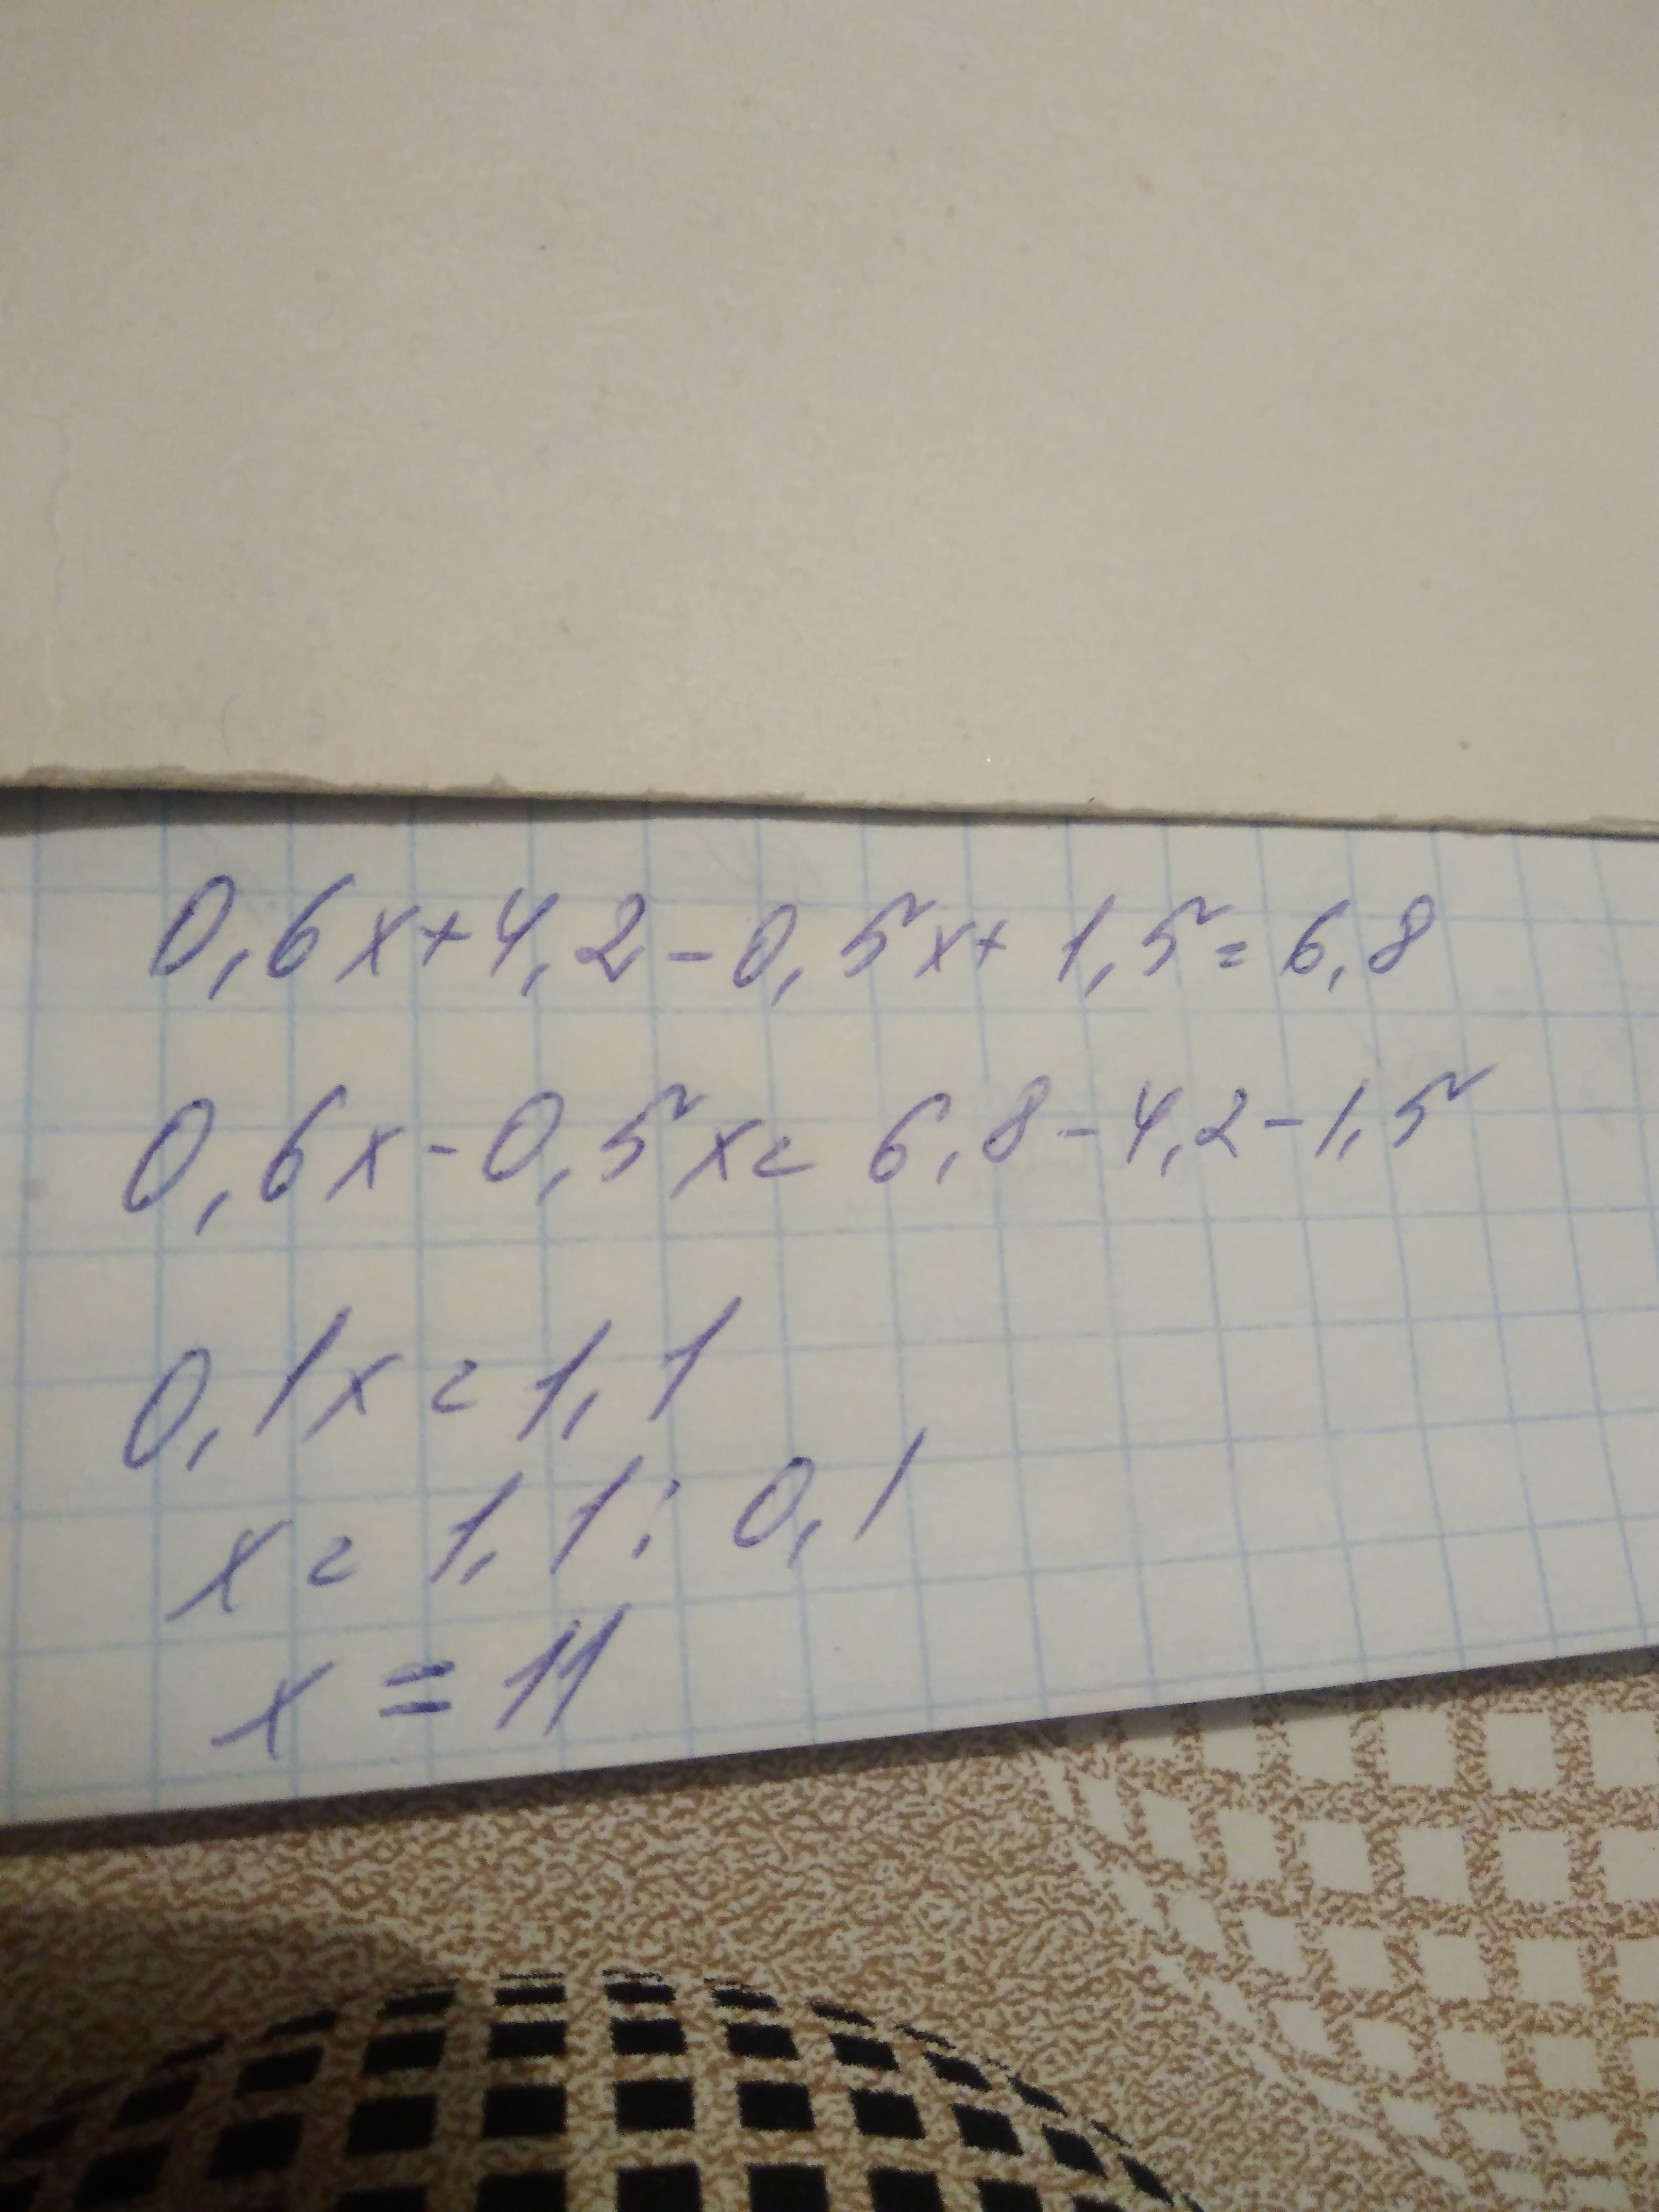 0,6x+4,2-0,5x+1,5=6,8
0,6x-0,5x=6,8-4,2-1,5
0,1x=1,1
x=1,1:0,1
x=11